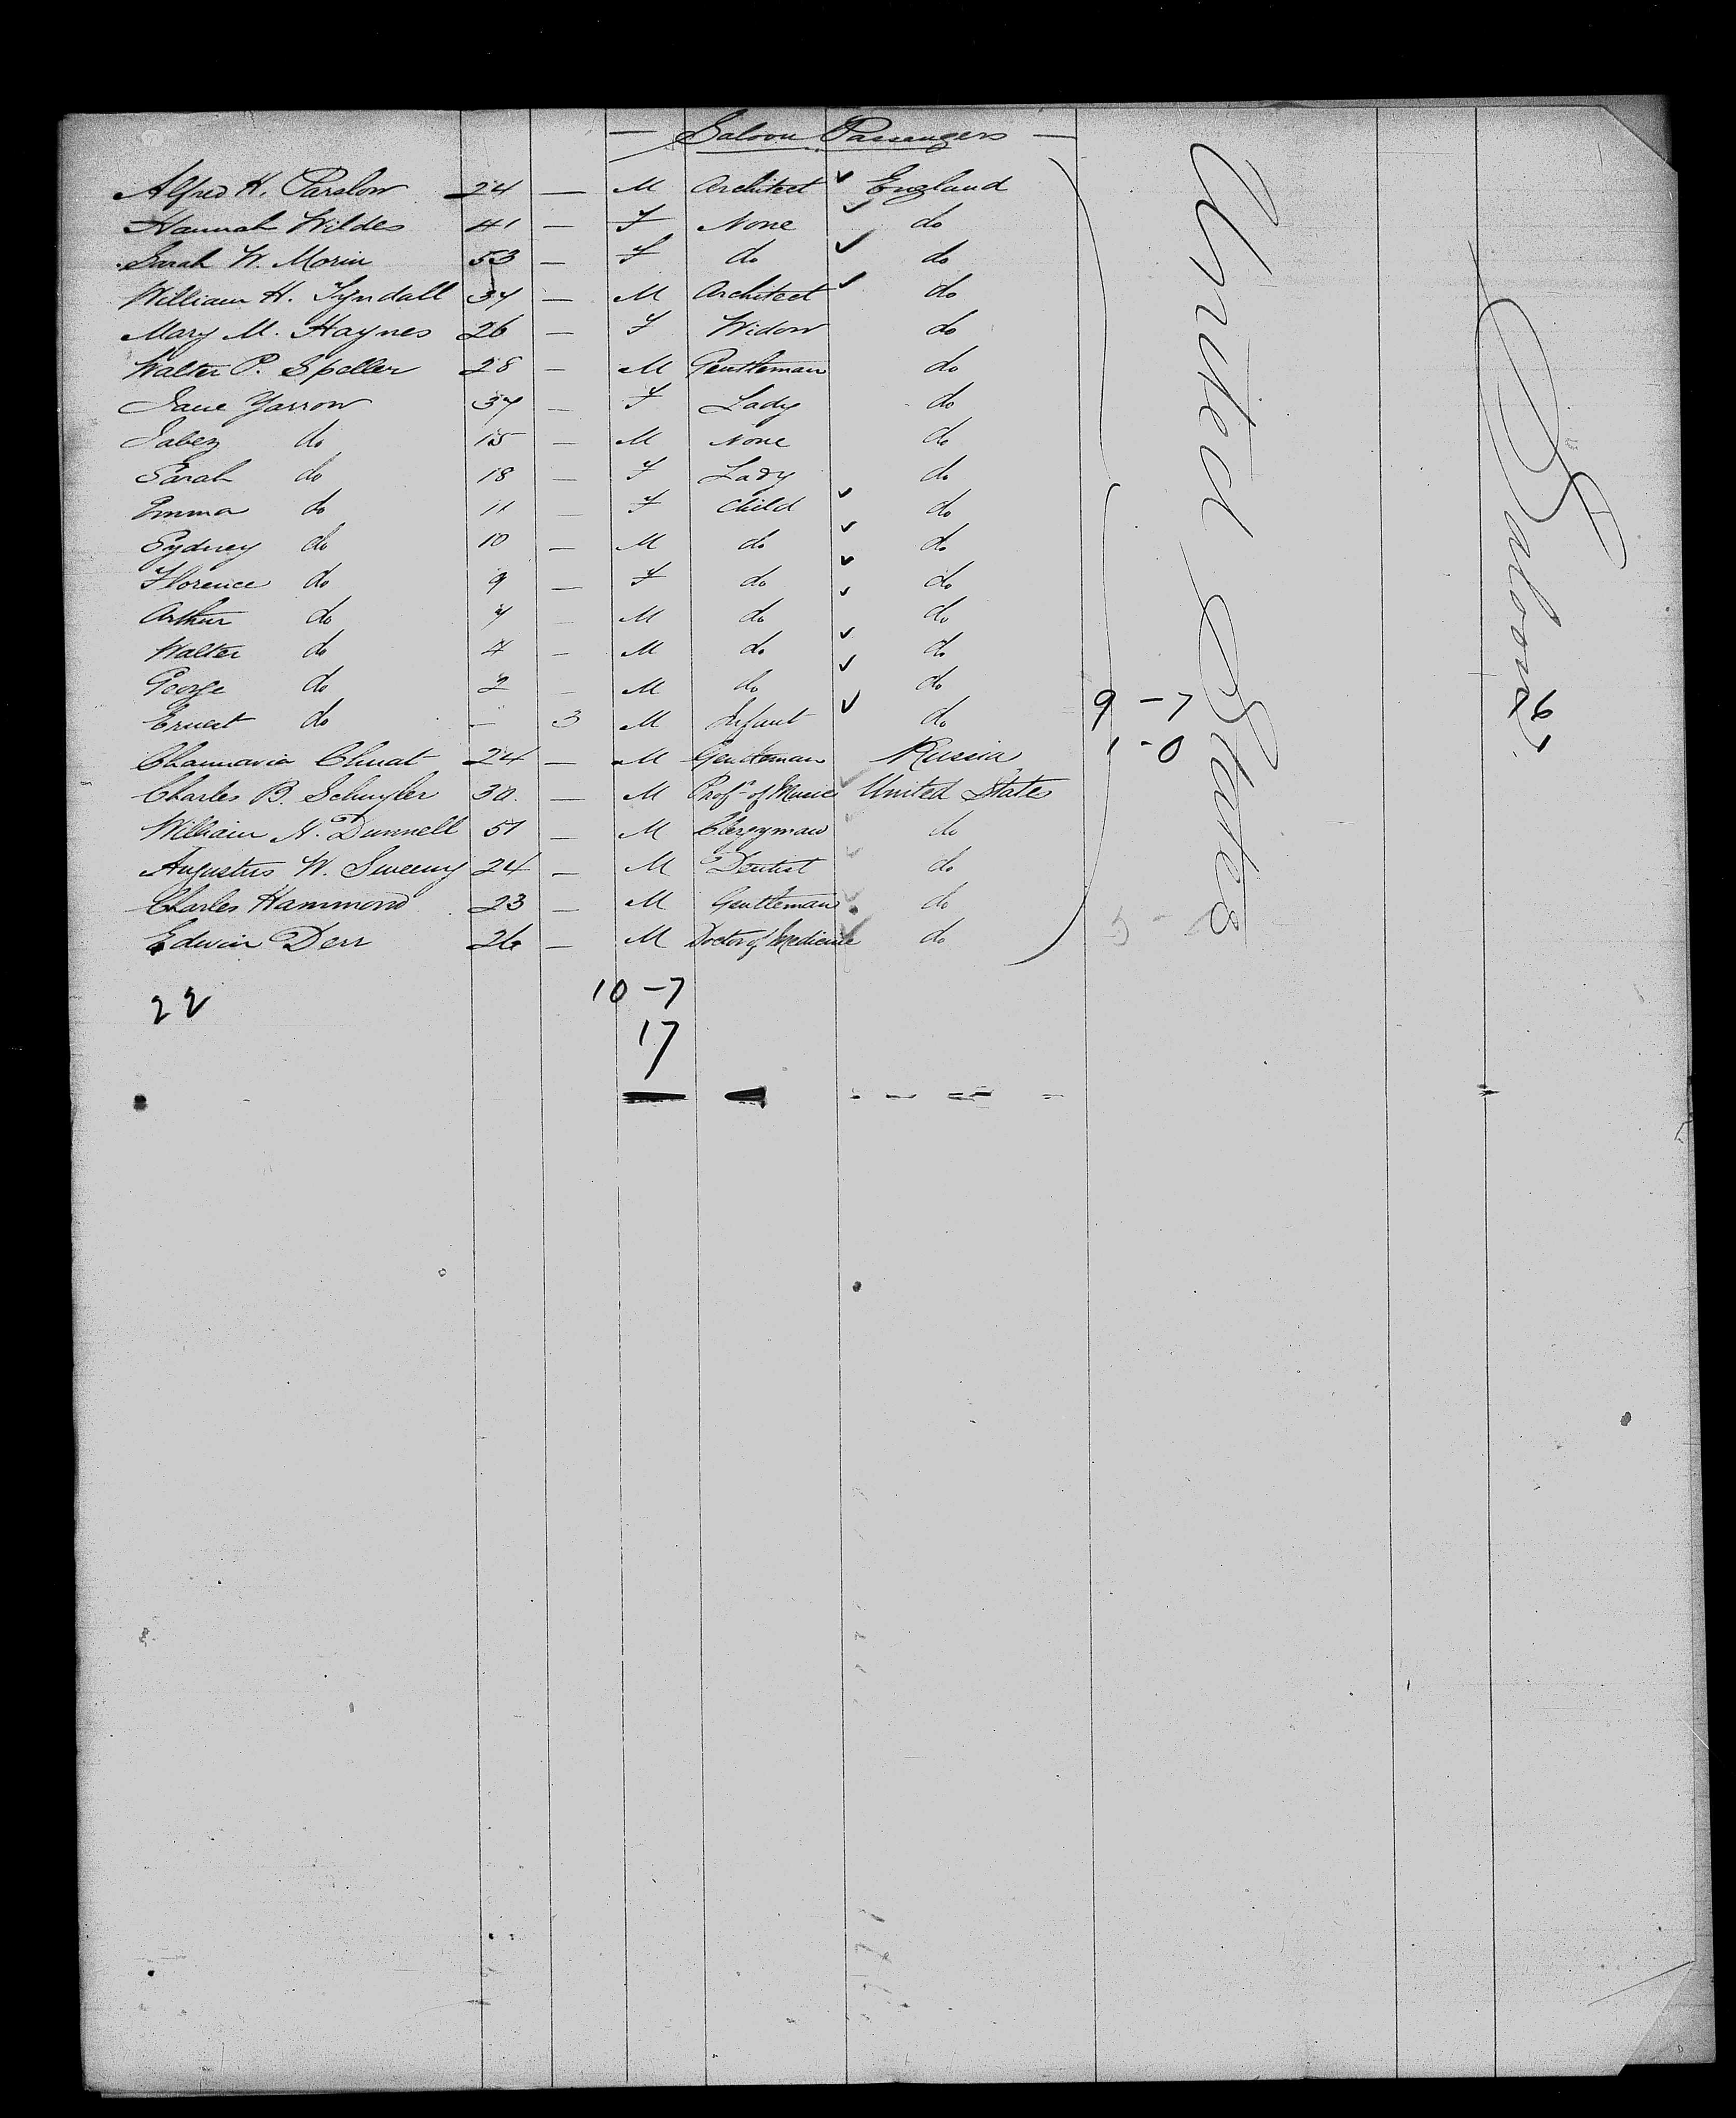 — Saloon Passengers —
Alfred H. Parslow 24 — M Architect ✓ England
Hannah Wildes 41 — F None ✓ do
Sarah W. Morin 53 — F do ✓ do
William H. Tyndall 37 — M Architect ✓ do
Mary M. Haynes 26 — F Widow do
Walter P. Speller 28 — M Gentleman do
Jane Yarrow 37 — F Lady do
Jabez do 15 — M None do
Sarah do 18 — F Lady do
Emma do 11 — F Child ✓ do
Sydney do 10 — M do ✓ do
Florence do 9 — F do ✓ do
Arthur do 7 — M do ✓ do
Walter do 4 — M do ✓ do
George do 2 — M do ✓ do
Ernest do — 3 M Infant ✓ do 9 - 7
24 — M Gentleman Russia 1 - 0
Charles B. Schuyler 30 — M Profr of Music ✓ United States
William N. Dunnell 51 — M Clergyman do
Augustus W. Sweeny 24 — M Dentist do
Charles Hammond 23 — M Gentleman do
Edwin Derr 26 — M Doctor of Medicine do 5 -
22
10 - 7
17
United States
Saloon